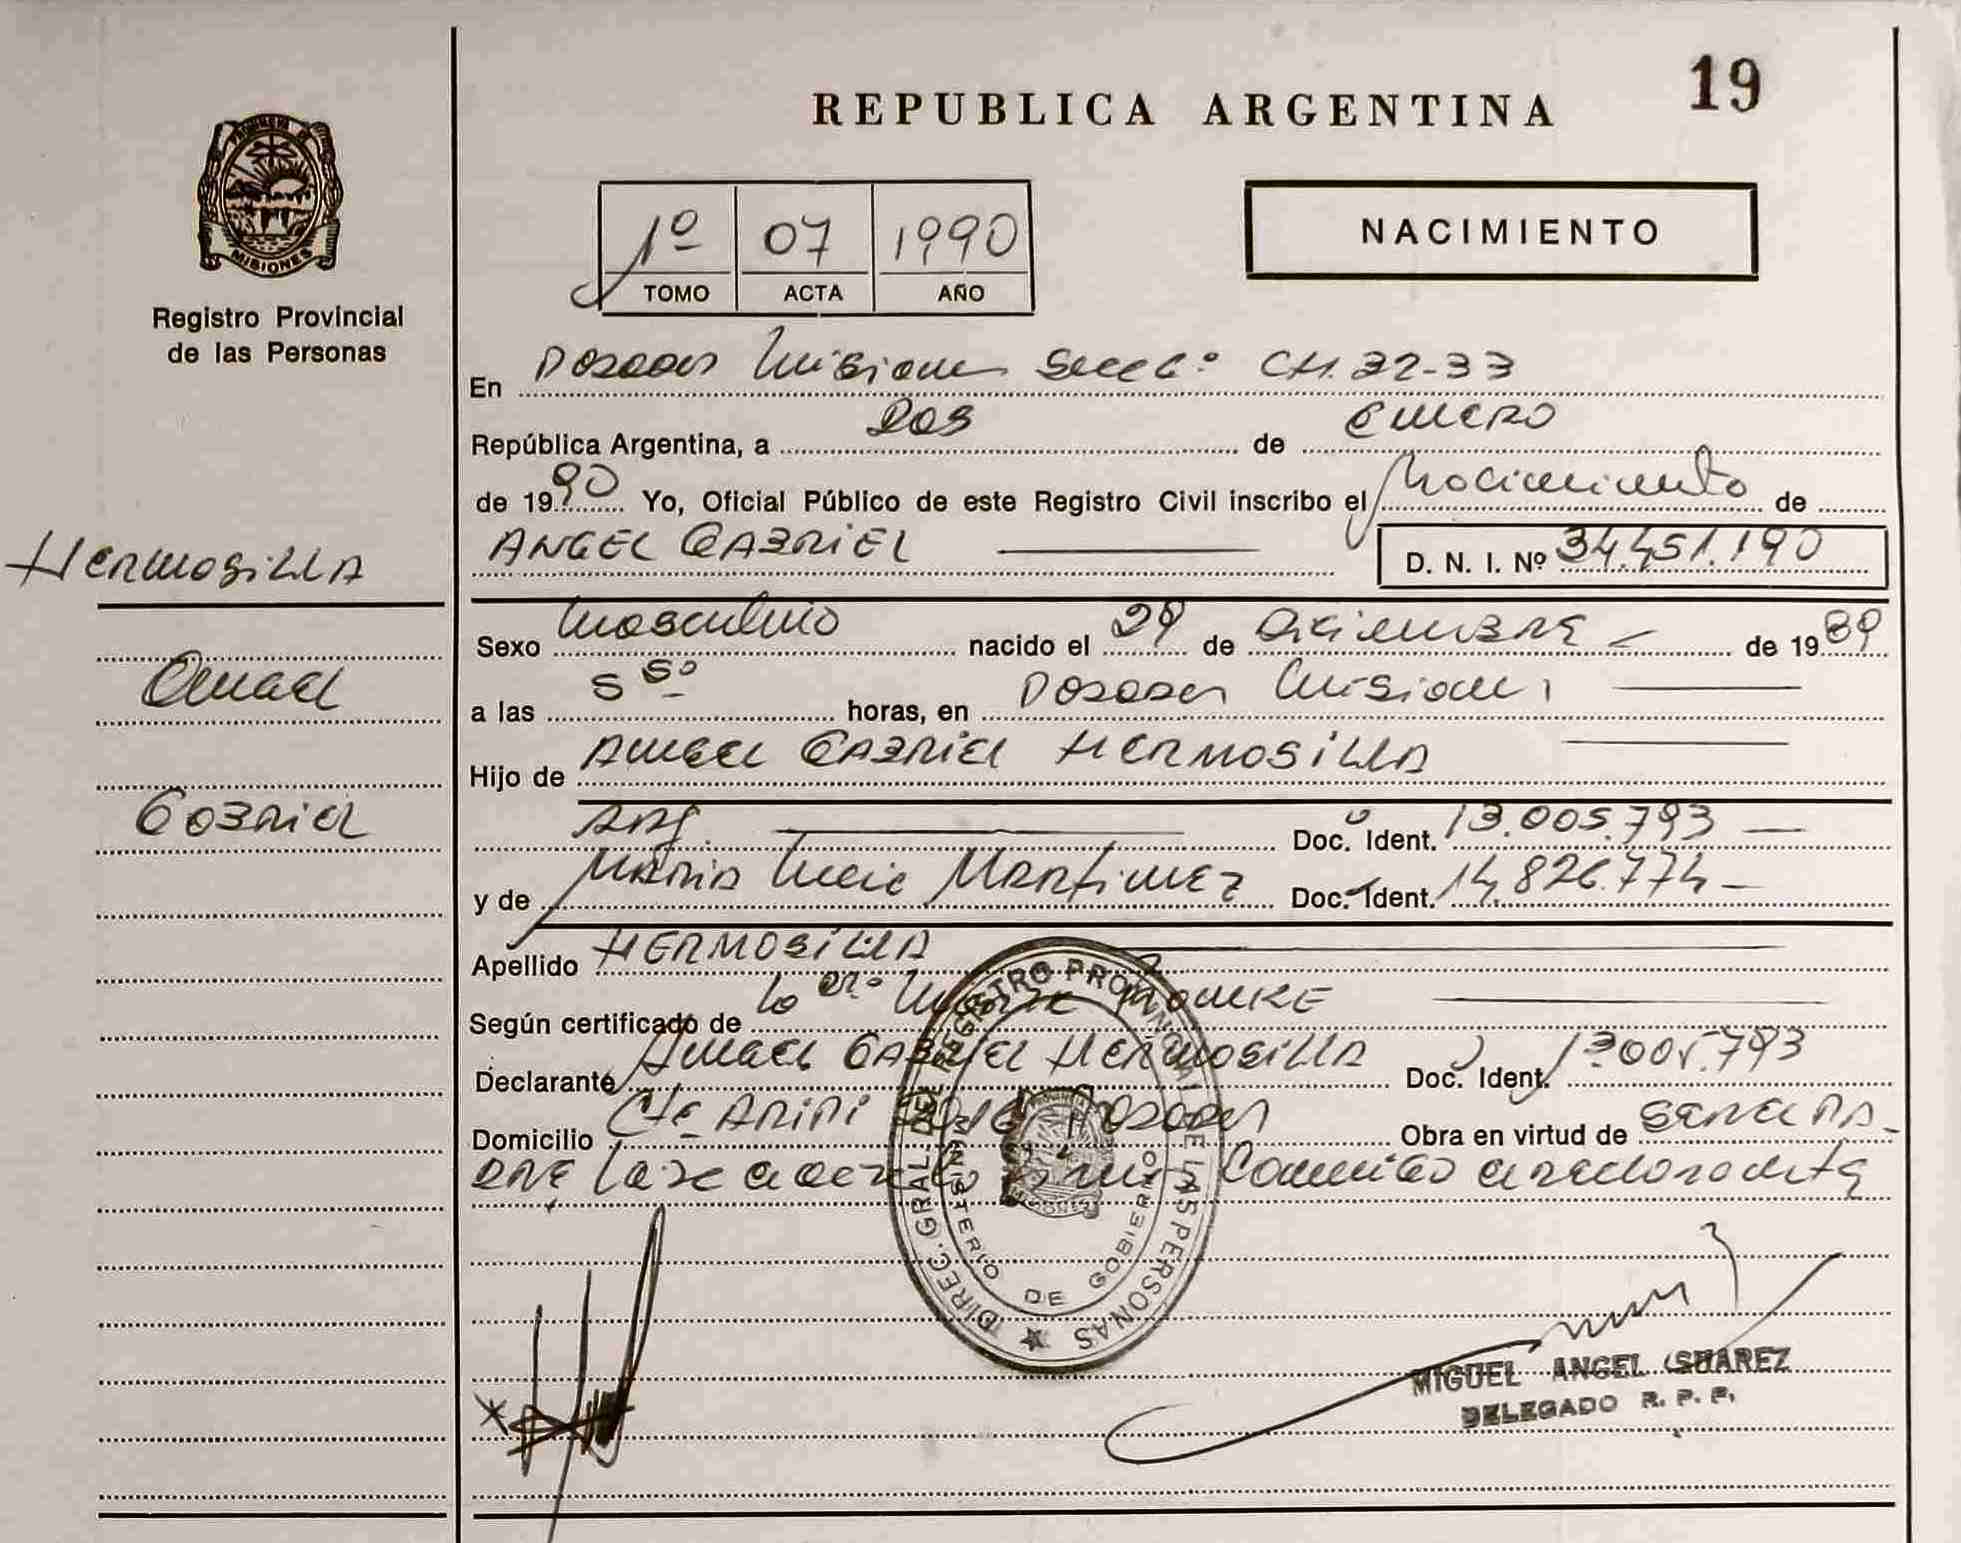 19
REPUBLICA ARGENTINA
MISIONES
Registro Provincial
de las Personas
1º 07 1990
TOMO ACTA AÑO
NACIMIENTO
En Posadas Misiones Secc CH. 32-33
República Argentina, a Dos de Enero
de 1990 Yo, Oficial Público de este Registro Civil inscribo el Nacimiento de
ANGEL GABRIEL D. N. I. Nº 34.451.190
HERMOSILLA
Angel
Gabriel
Sexo Masculino nacido el 29 de Diciembre de 1989
a las 5 50 horas, en Posadas Misiones
Hijo de ANGEL GABRIEL HERMOSILLA
Arg. Doc. Ident. 13.005.793
y de Maria Lucia Martinez Doc. Ident. 14.826.774
Apellido HERMOSILLA
Según certificado de
Declarante Angel GABRIEL HERMOSILLA Doc. Ident. 13.005.793
Domicilio Posadas Obra en virtud de
DIREC. GRAL. DEL REGISTRO PROVINCIAL DE LAS PERSONAS
MINISTERIO DE GOBIERNO
MIGUEL ANGEL SUAREZ
DELEGADO R. P. P.